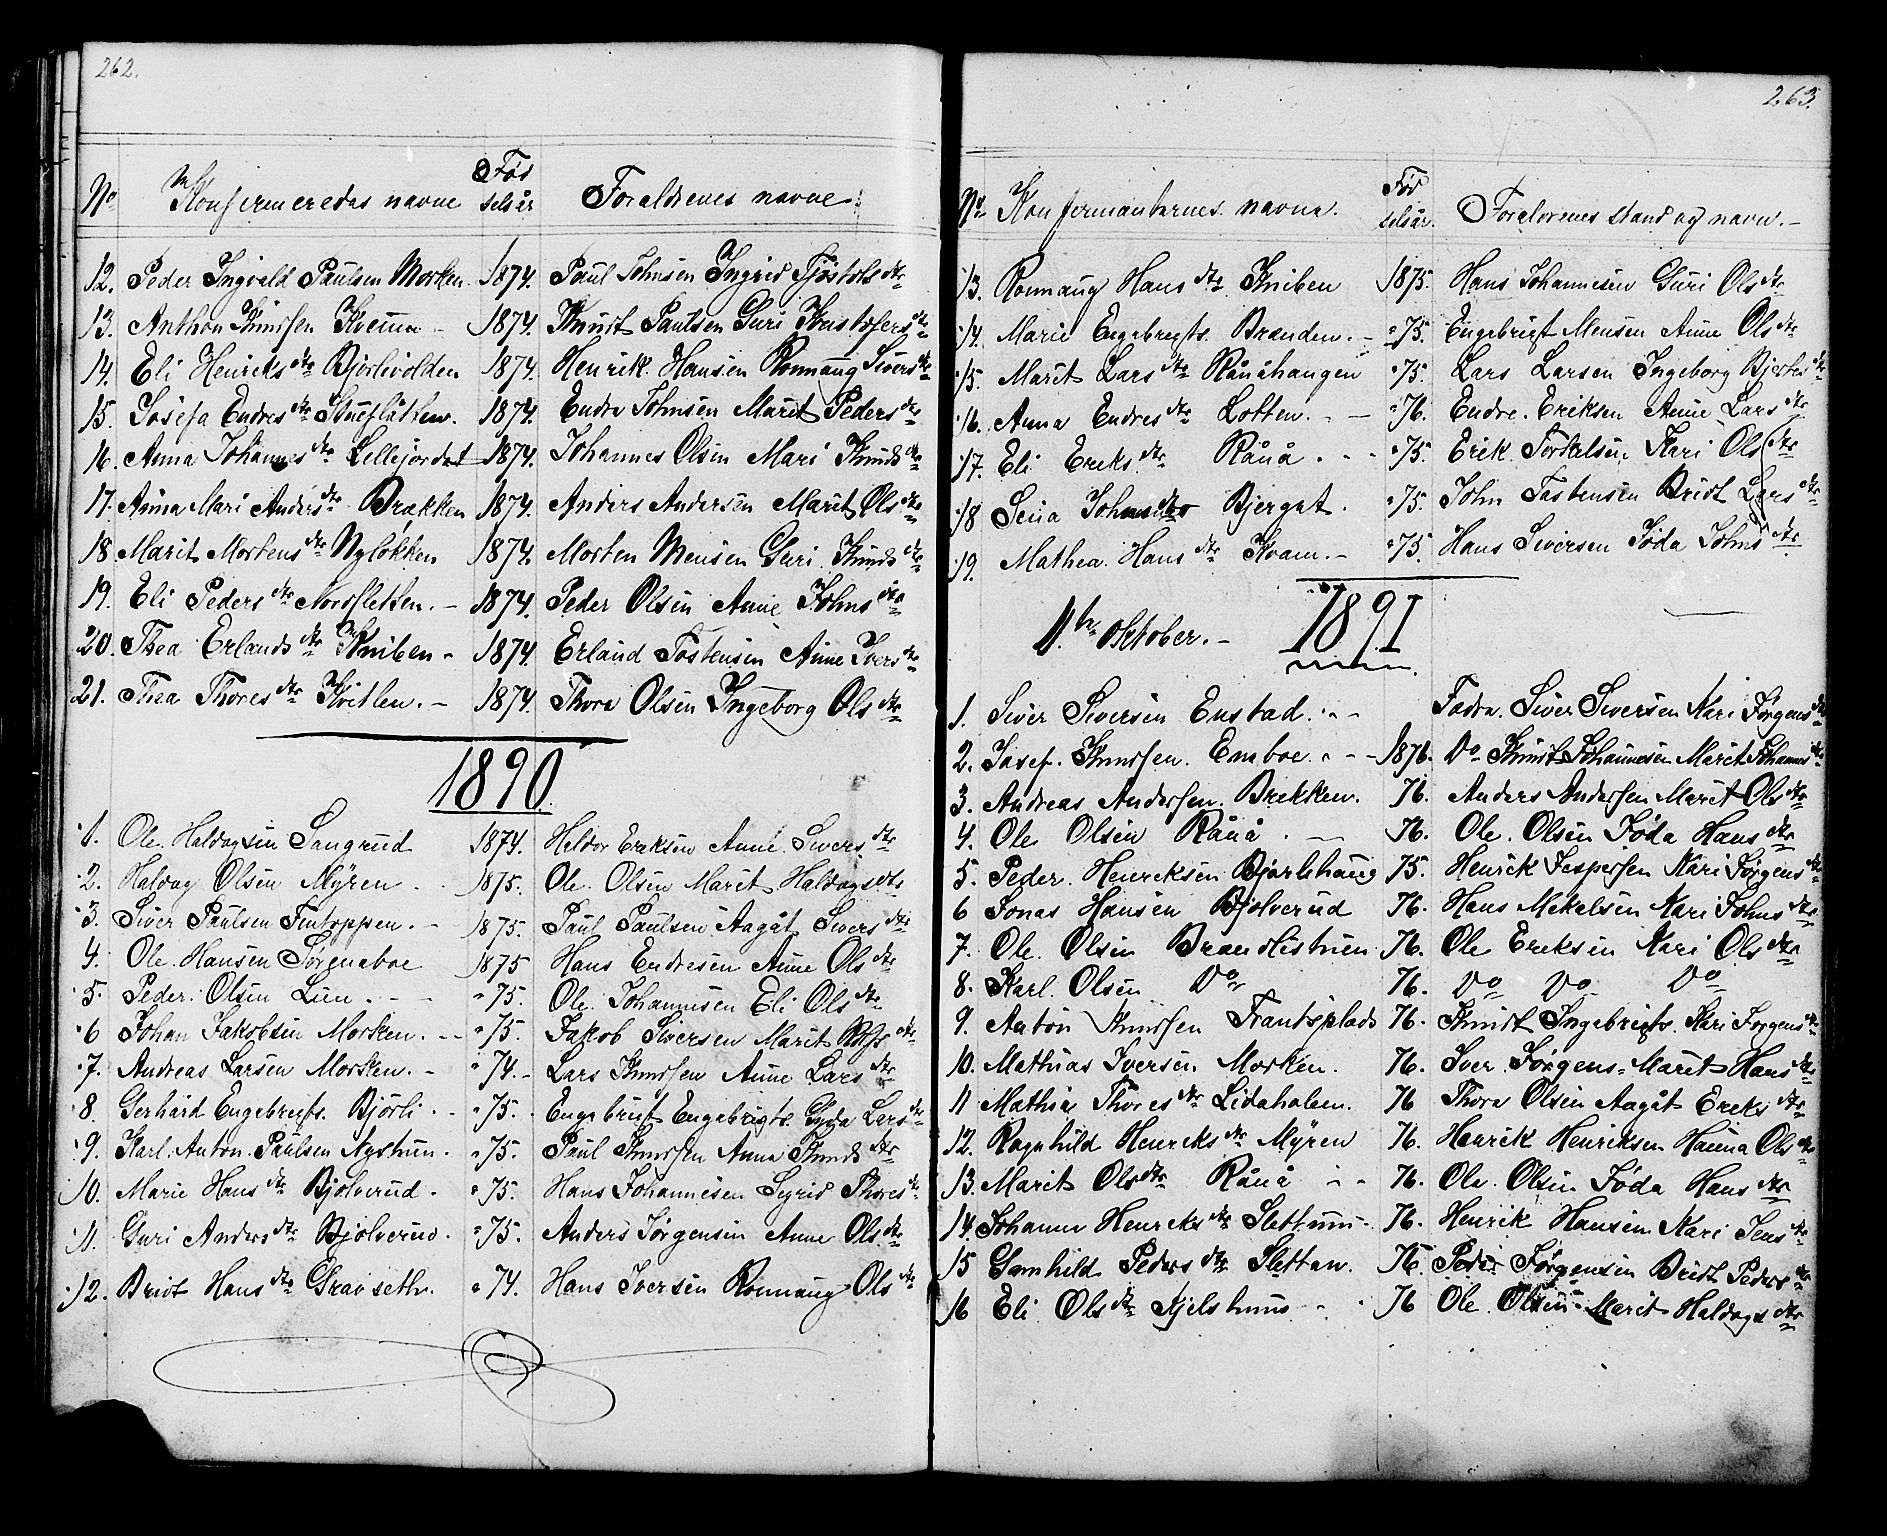 262.
No Konfirmeredes navne Fødselsår Foraldrenes navne.
12. Peder Ingvald Paulsen Morken. 1874. Paul Johnsen Ingrid Tjøstolsdtr
13. Anthon Knudsen Kvema - 1874. Knudt Paulsen Guri Kristofersdtr
14. Eli Henriksdtr Bjørlivolden 1874. Henrik Hansen Ronnaug Siversdtr
15. Josefa Endresdtr Stueflåtten. 1874. Endre Johnsen Marit Pedersdtr
16. Anna Johannesdtr Lillejordet 1874. Johannes Olsen Mari Knudsdtr
17. Anna Mari Andersdtr Brækken 1874. Anders Andersen Marit Olsdtr
18 Marit Mortensdtr Nyløkken 1874. Morten Monsen Guri Knudsdtr
19. Eli Pedersdtr Nordsletten. - 1874. Peder Olsen Anne Johnsdtr
20. Thea Erlandsdtr Kniben - 1874. Erland Tostensen Anne Iversdtr
21. Thea Thoresdtr Kvitlen. - 1874. Thore Olsen Ingeborg Olsdtr
1890
1. Ole Haldogsen Sangrud 1874. Haldor Eriksen Anne Siversdtr
2. Haldog Olsen Myren. 1875. Ole Olsen Marit Haldogsdtr
3. Siver Paulsen Tintoppen. - 1875. Paul Paulsen Aagåt Siversdtr
4. Ole Hansen Sørgenaboe 1875 Hans Endresen Anne Olsdtr
5. Peder Olsen Lien. - - " 75. Ole Johannisen Eli Olsdtr
6 Johan Jakobsen Morken. - - " 75. Jakob Siversen Marit dtr
7. Andreas Larsen Morken. - " 74. - Lars Knudsen Anne Larsdtr
8. Gerhard Engebregts. Bjørli. - " 75. Engebrigt Engebrigts. Gyda Larsdtr
9. Karl Anton Paulsen Nystuen. " 75. Paul Knudsen Anna Knudsdtr
10. Marie Hansdtr Bjølverud. " 75. Hans Johannesen Sigrid Thoresdtr
11. Guri Andersdtr Bjølverud. " 75. Anders Jørgensen Anne Olsdtr
12. Bridt Hansdtr Gravseth. " 74. Hans Iversen Ronnaug Olsdtr
263.
No Konfirmanternes navne. Fødselsår. Foraldrenes stand og navn. -
13. Ronnaug Hansdtr Kniben 1875. Hans Johannesen Guri Olsdtr
14. Marie Engebregts. Brænden. - " 75. Engebrigt Monsen Anne Olsdtr
15. Marit Larsdtr Råuåhaugen " 75. Lars Larsen Ingeborg Bjertesdtr
16. Anna Endresdtr Lotten. - - " 76. Endre Eriksen Anne Larsdtr
17. Eli Eriksdtr Råuå. - - " 75. Erik Torkelsen Kari Olsdtr
18 Sena Johnsdtr Bjergat. " 75. John Tostensen Bridt Larsdtr
19. Mathea Hansdtr Kvam. - " 75. Hans Siversen Jøda Johnsdtr
11te Oktober. - 1891
1. Siver Siversen Enstad. - - Fadra. Siver Siversen Kari Jørgensdtr
2. Josef. Knudsen. Enaboe. - - 1876. Do Knudt Johannesen Marit Johannesdtr
3. Andreas Andersen. Brekken. 76. Anders Andersen Marit Olsdtr
4. Ole Olsen Råuå. - 76. Ole Olsen Jøda Hansdtr
5. Peder. Henriksen Bjørlihaug 75. Henrik Jespersen Kari Jørgensdtr
6 Jonas Hansen Bjølverud 76. Hans Mekalsen Kari Johnsdtr
7. Ole Olsen Brandlistuen 76. Ole Eriksen Kari Olsdtr
8. Karl Olsen Do 76. Do Do Do
9. Anton Knudsen Frantsplads 76. Knudt Ingebrigts. Kari Jørgensdtr
10. Mathias Iversen Morken. 76. Iver Jørgens- Marit Hansdtr
11 Mathia Thoresdtr Lidaholen. 76 Thore Olsen Aagåt Eriksdtr
12. Ragnhild Henreksdtr Myren 76. Henrik Henriksen Hanna Olsdtr
13. Marit Olsdtr Råuå - - 76. Ole Olsen Jøda Hansdtr
14. Johanne Henreksdtr Slettum - 76. Henrik Hansen Kari Jensdtr
15 Gunhild Pedersdtr Sletten. 76. Peder Jørgensen Bridt Pedersdtr
16 Eli Olsdtr Kjelstuus - 76 Ole Olsen Marit Haldogsdtr